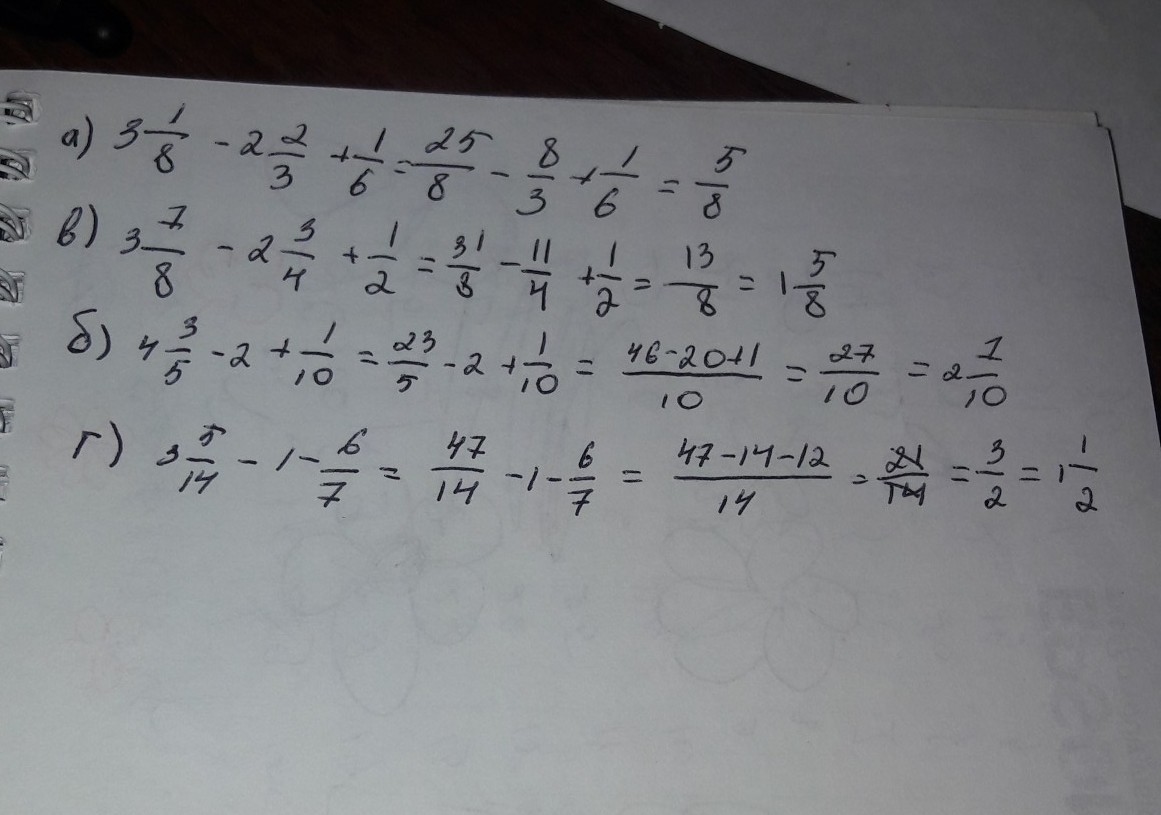 а) 3 1/8 - 2 2/3 + 1/6 = 25/8 - 8/3 + 1/6 = 5/8
в) 3 7/8 - 2 3/4 + 1/2 = 31/8 - 11/4 + 1/2 = 13/8 = 1 5/8
б) 4 3/5 - 2 + 1/10 = 23/5 - 2 + 1/10 = (46-20+1)/10 = 27/10 = 2 7/10
г) 3 5/14 - 1 - 6/7 = 47/14 - 1 - 6/7 = (47-14-12)/14 = 21/14 = 3/2 = 1 1/2